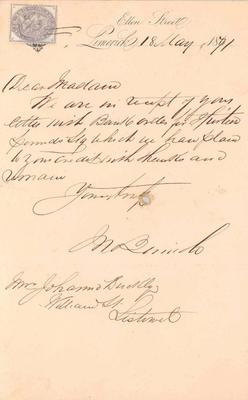 Ellen Street,
Limerick 18 May 1891
Dear Madam
We are in receipt of your
letter with Bank order for
Pounds which we have placed
to your credit with thanks and
remain
Yours truly
Mrs Johanna Buckley
William St
Listowel